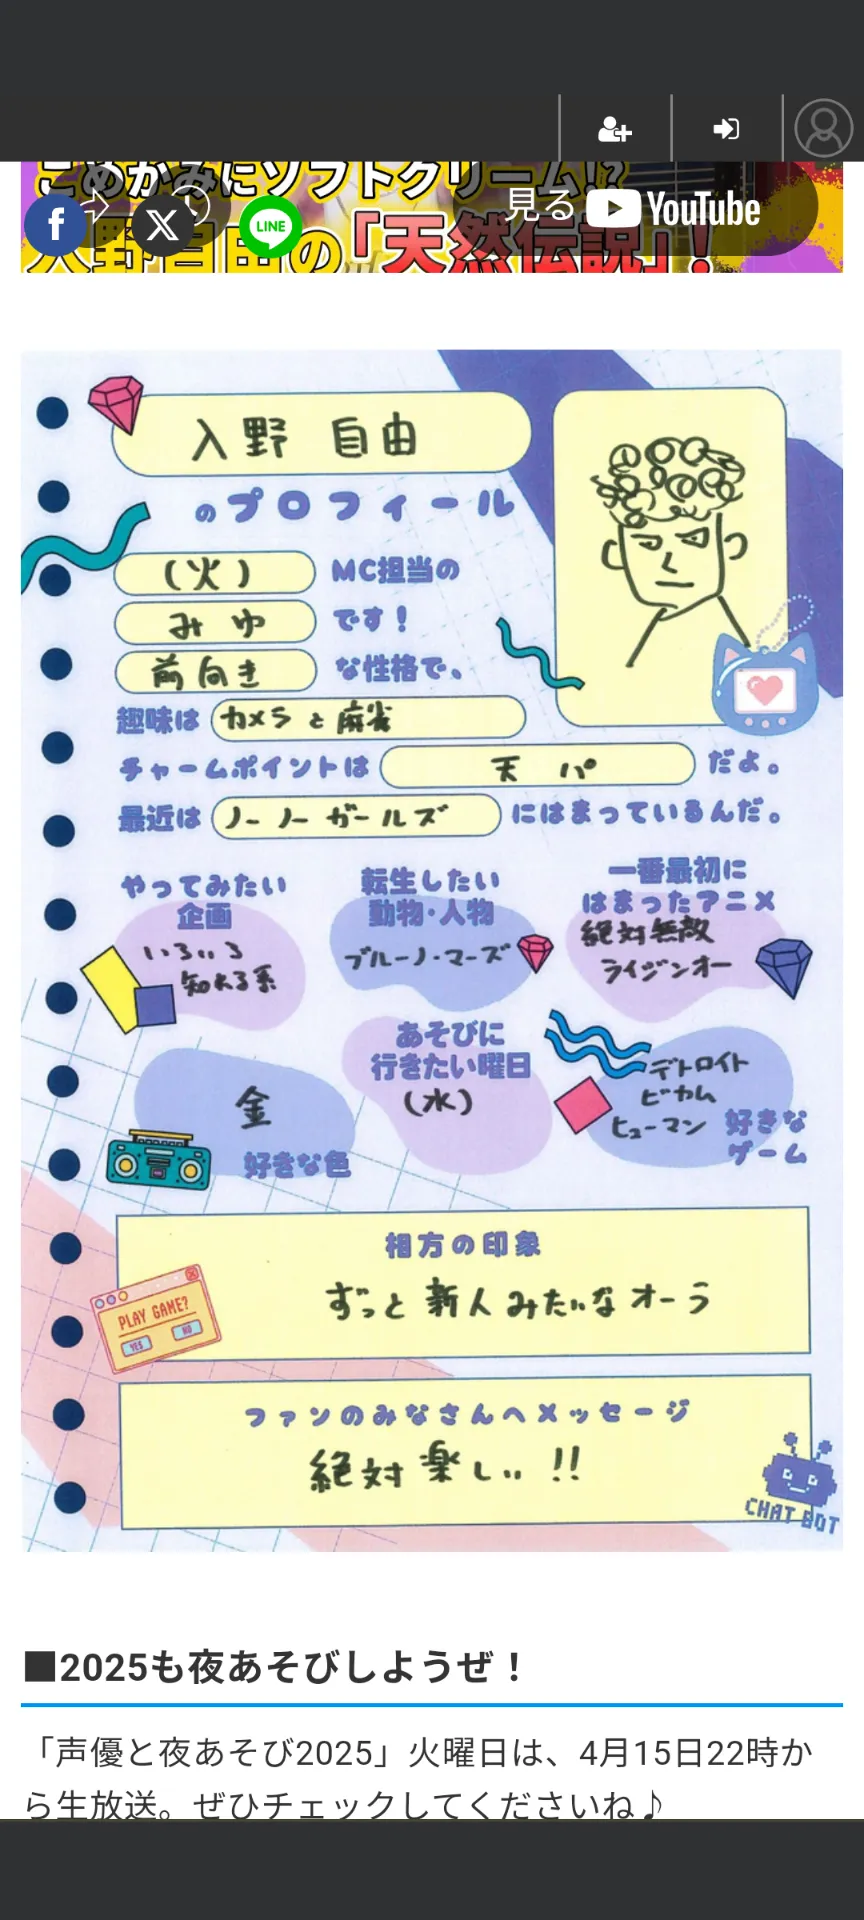 こめかみにソフトクリーム!?
入野自由の「天然伝説」!
見る YouTube
f
X
LINE
入野 自由
のプロフィール
(火) MC担当の
みゆ です!
前向き な性格で、
趣味は カメラと麻雀
チャームポイントは 天パ だよ。
最近は ノーノーガールズ にはまっているんだ。
やってみたい
企画
いろいろ
知れる系
転生したい
動物・人物
ブルーノ・マーズ
一番最初に
はまったアニメ
絶対無敵
ライジンオー
金
好きな色
あそびに
行きたい曜日
(水)
デトロイト
ビカム
ヒューマン
好きな
ゲーム
相方の印象
ずっと新人みたいなオーラ
PLAY GAME?
YES
NO
ファンのみなさんへメッセージ
絶対楽しい!!
CHAT BOT
■2025も夜あそびしようぜ!
「声優と夜あそび2025」火曜日は、4月15日22時か
ら生放送。ぜひチェックしてくださいね♪